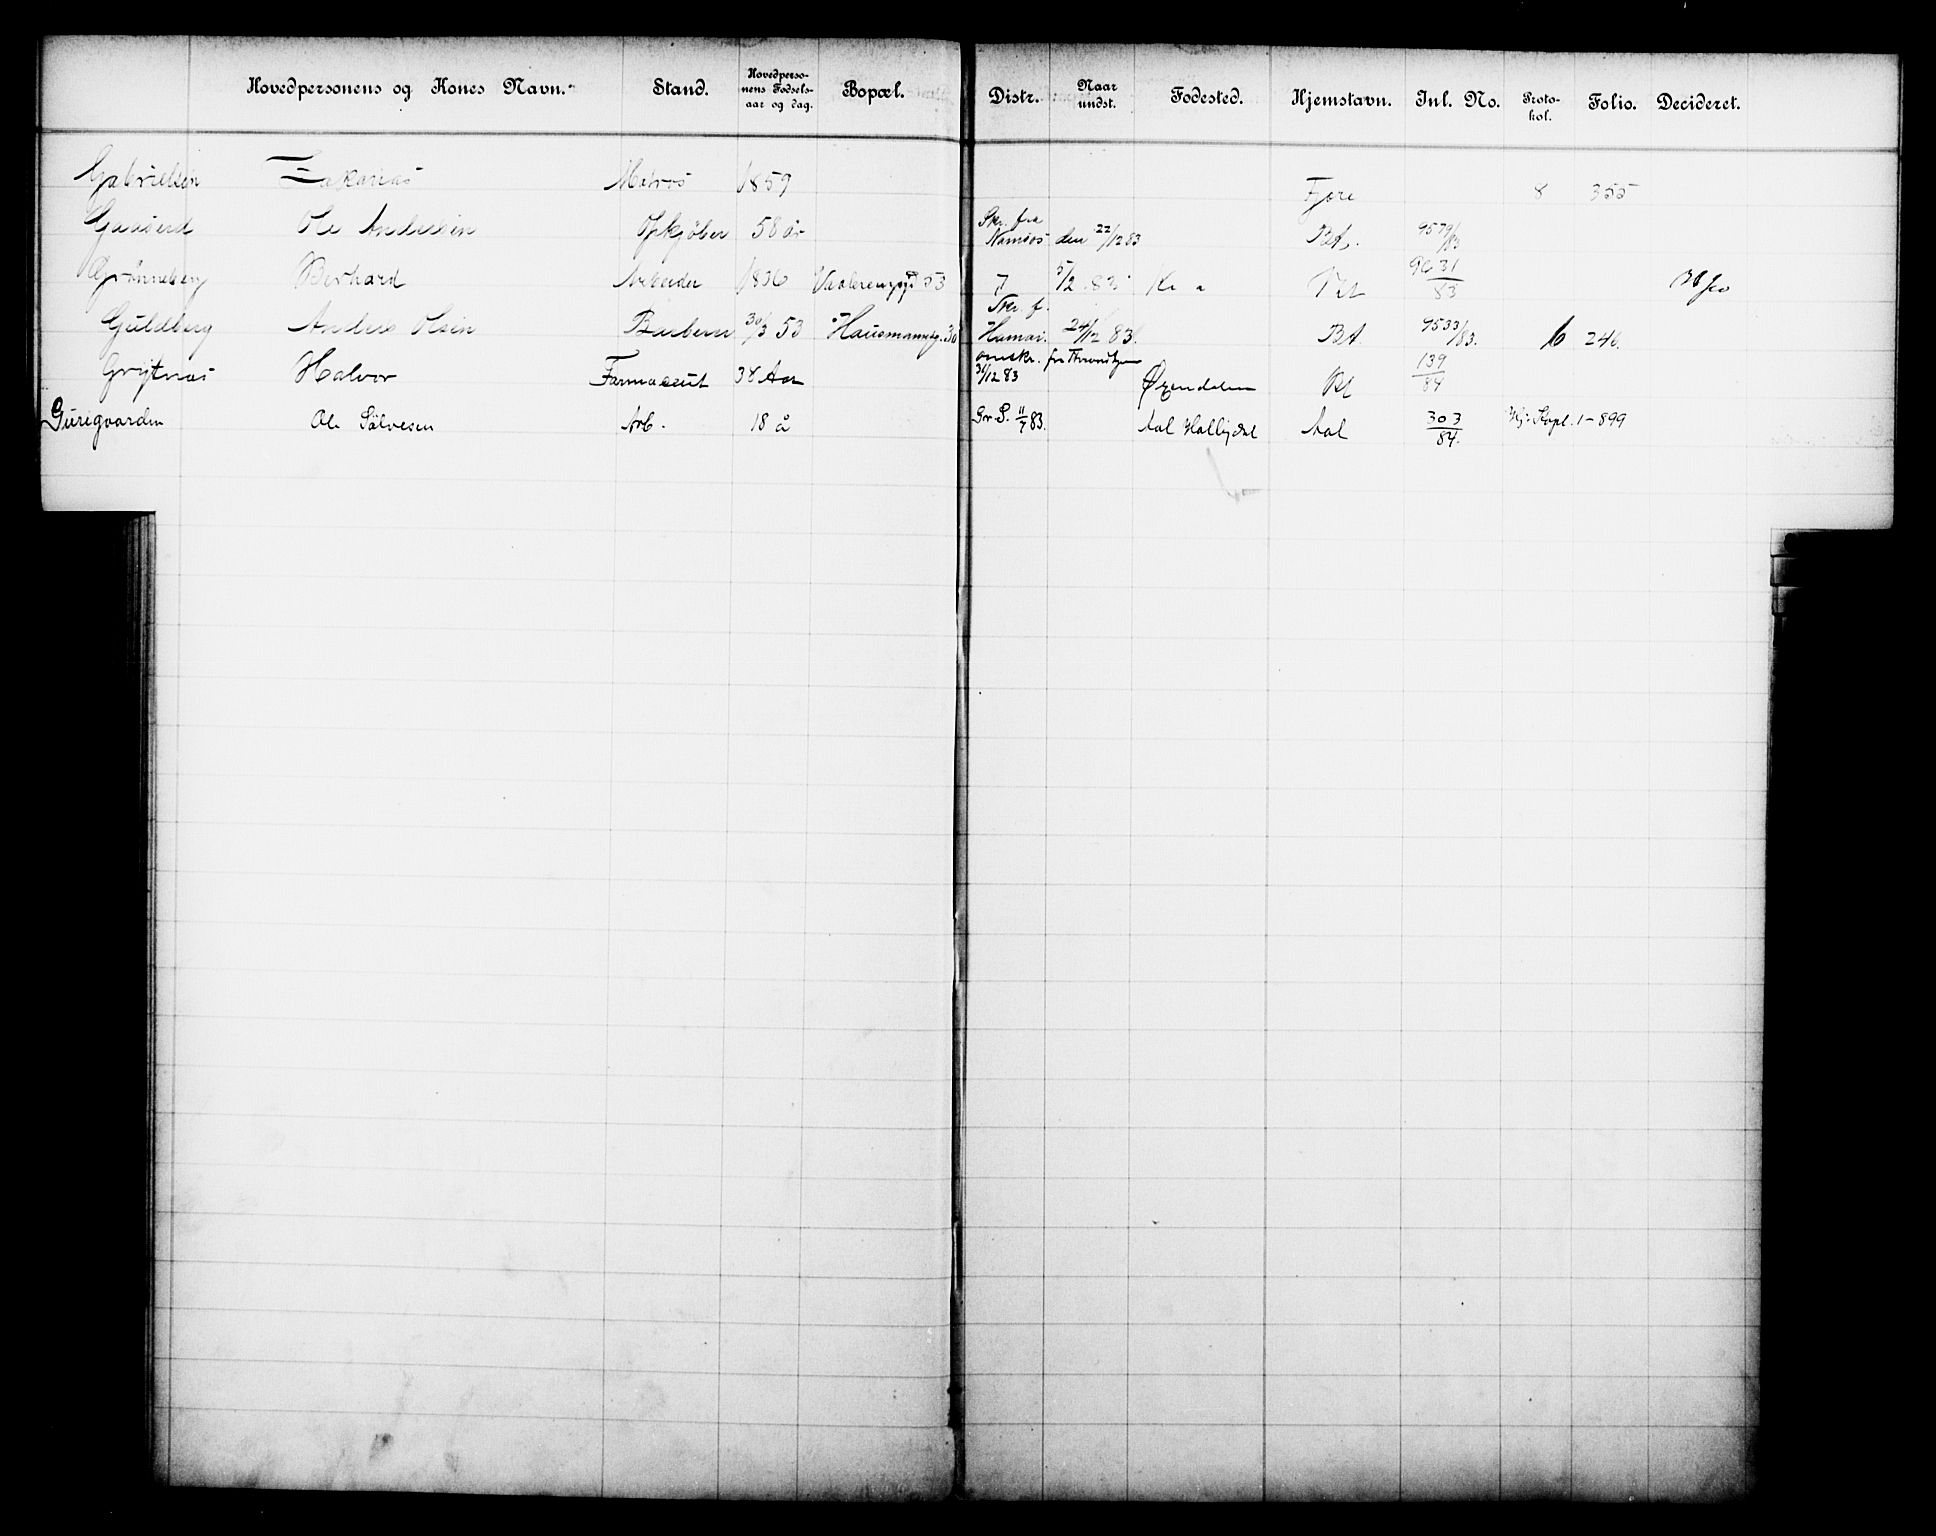 Hovedpersonens og Kones Navn. Stand. Hovedpersonens Fødselsaar og dag. Bopæl. Distr. Naar undst. Fødested. Hjemstavn. Inl. No. Protokol. Folio. Decideret.
Gabrielsen Zakarias Matros 1859 Fjære 8 355
Ole Andersen Opkjøber 58 år Skr. fra Namsos den 22/12 83 Bt. 9579/83
Grønneberg Berhard Arbeider 1836 53 7 5/2 83 Kr a 9631/83
Guldberg Anders Olsen Barberer 30/3 53 Hausmannsg. 30 Skr. f. Hamar. 24/12 83. Bt. 9533/83. 6 246.
Grytnæs Halvor Farmaceut 38 Aar omskr. fra Throndhjem 31/12 83 Øxendalen 139/84
Guriegaarden Ole Sølvesen Arb. 18 å 11/7 83. Aal Hallingdal Aal 303/84. Kopl. 1-899